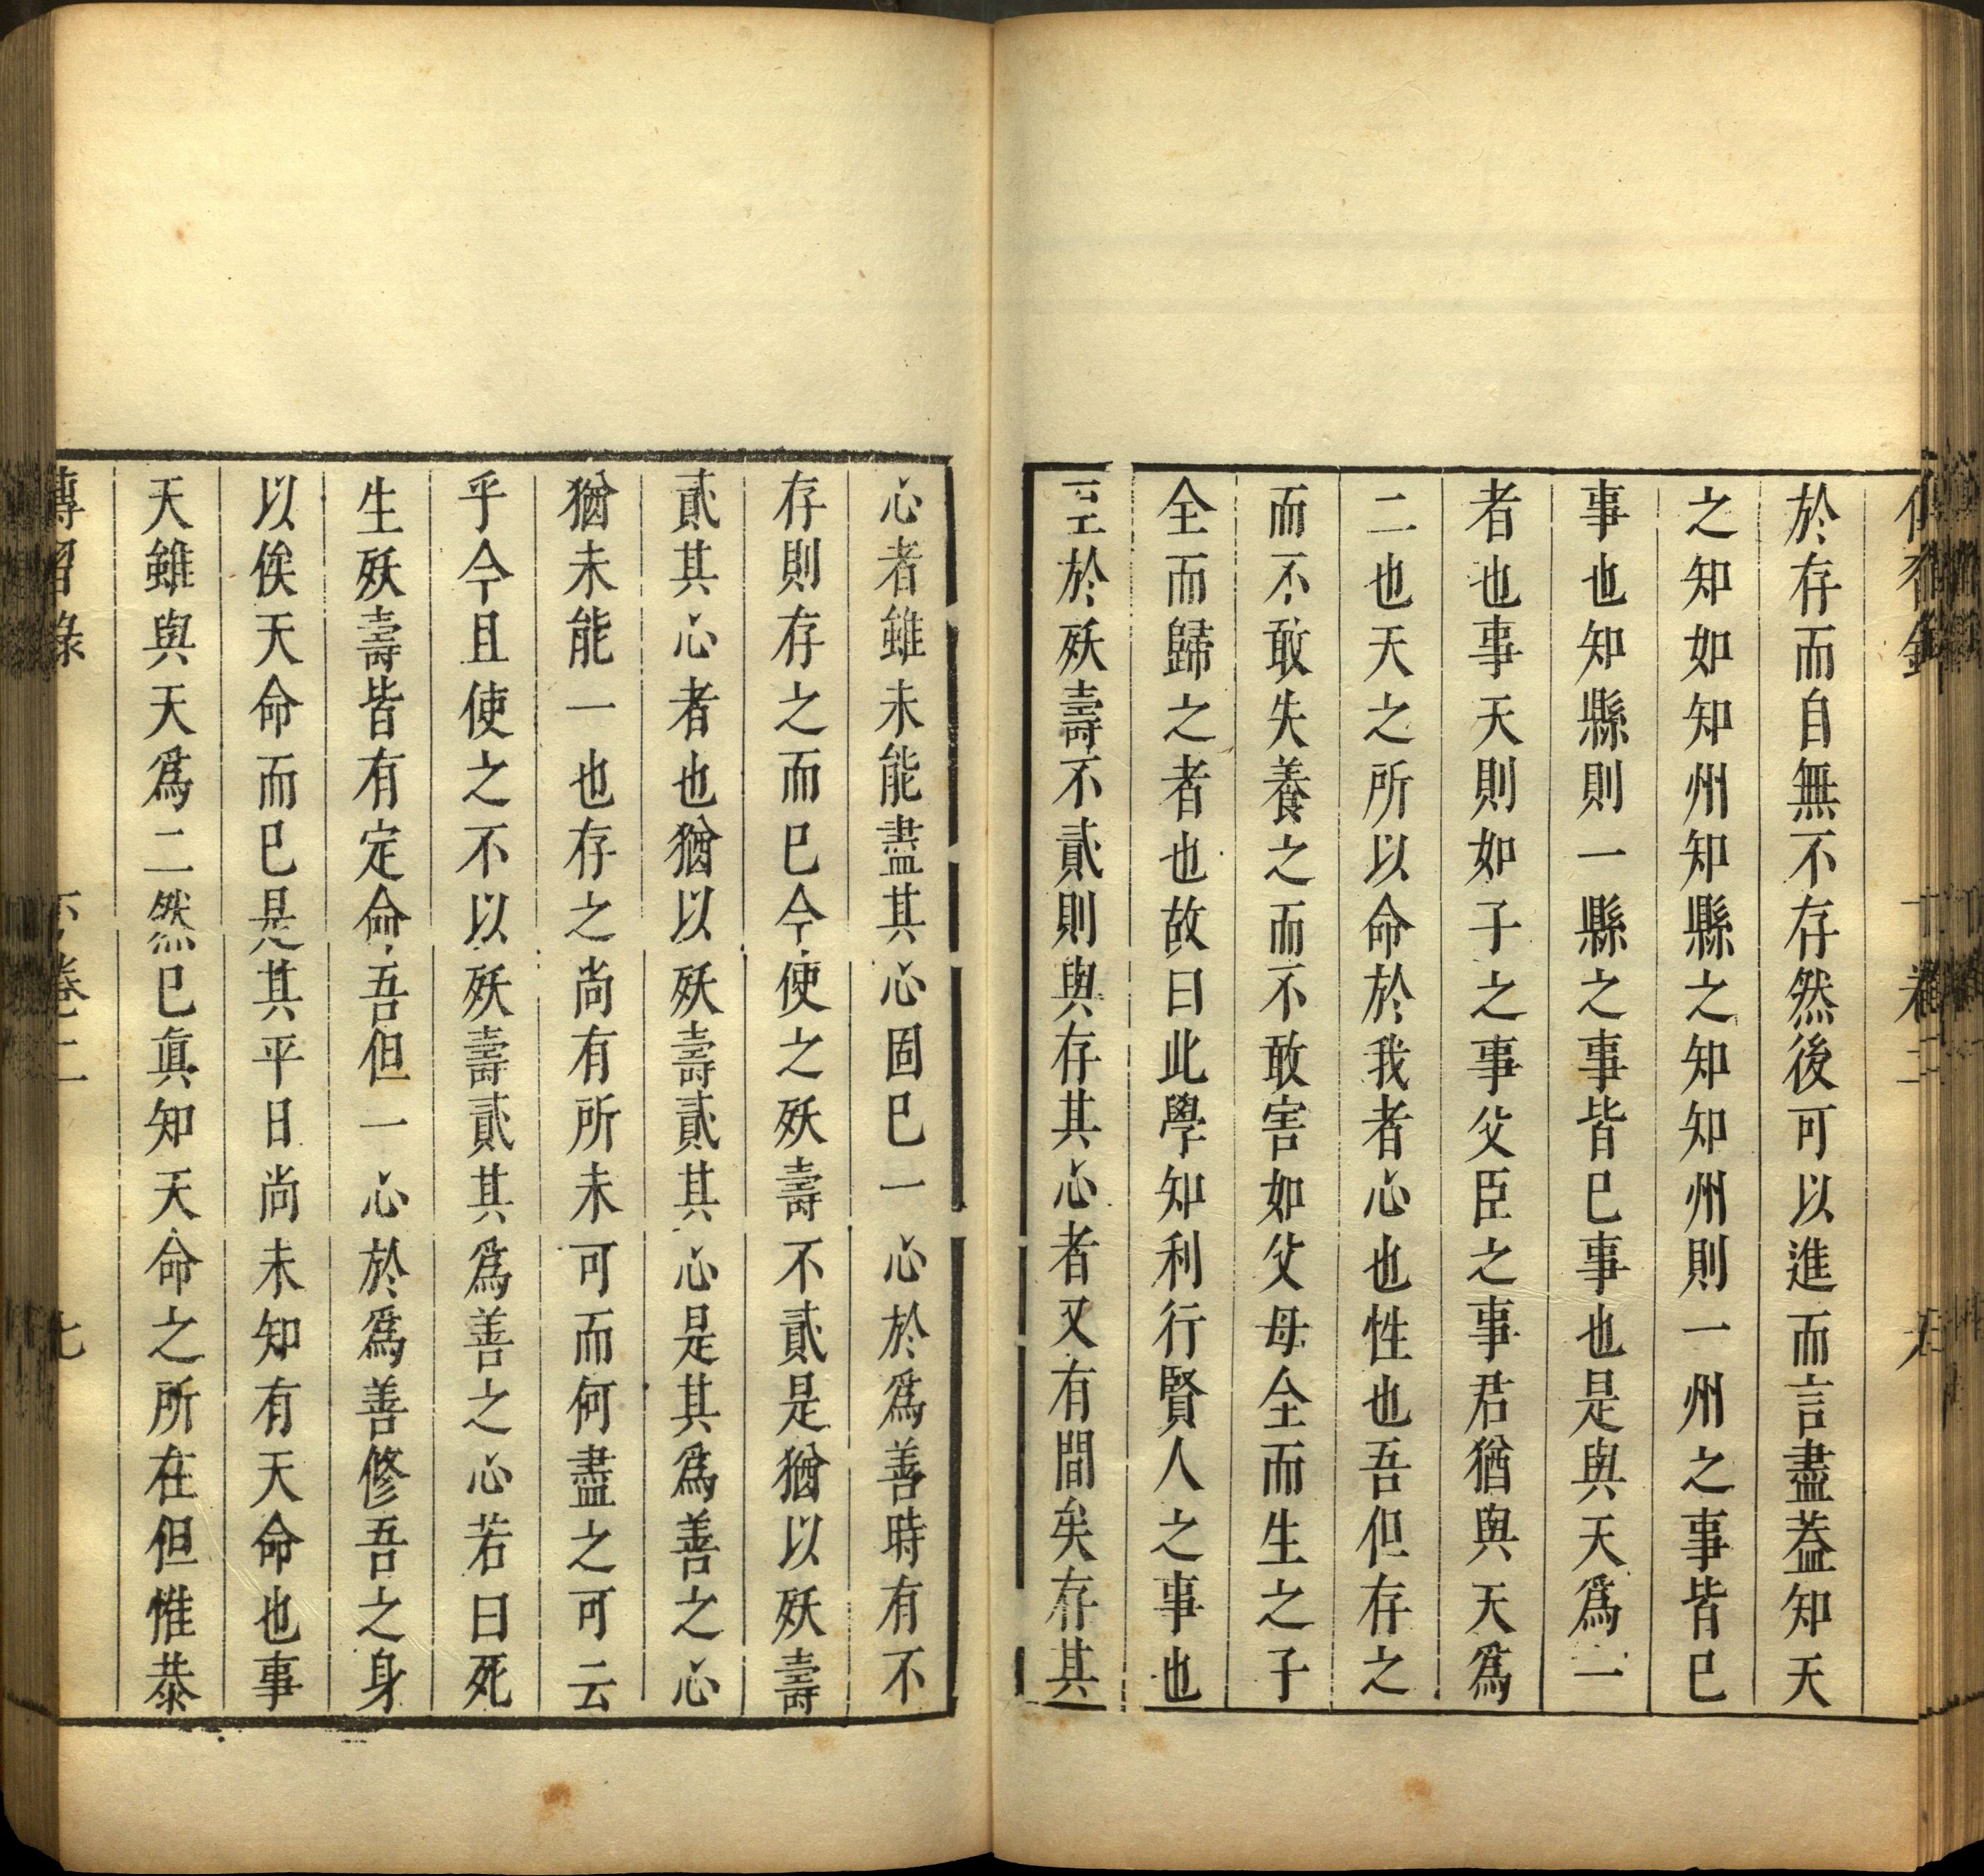 於存而自無不存然後可以進而言盡葢知天
之知如知州知縣之知知州則一州之事皆已
事也知縣則一縣之事皆已事也是與天爲一
者也事天則如子之事父臣之事君猶與天爲
二也天之所以命於我者心也性也吾但存之
而不敢失養之而不敢害如父母全而生之子
全而歸之者也故曰此學知利行賢人之事也
至於殀壽不貳則與存其心者又有間矣存其
心者雖未能盡其心固已一心於爲善時有不
存則存之而已今使之殀壽不貳是猶以殀壽
貳其心者也猶以殀壽貳其心是其爲善之心
猶未能一也存之尚有所未可而何盡之可云
乎今且使之不以殀壽貳其爲善之心若曰死
生殀壽皆有定命吾但一心於爲善修吾之身
以俟天命而已是其平日尚未知有天命也事
天雖與天爲二然已眞知天命之所在但惟恭
傳習錄 卷二 七